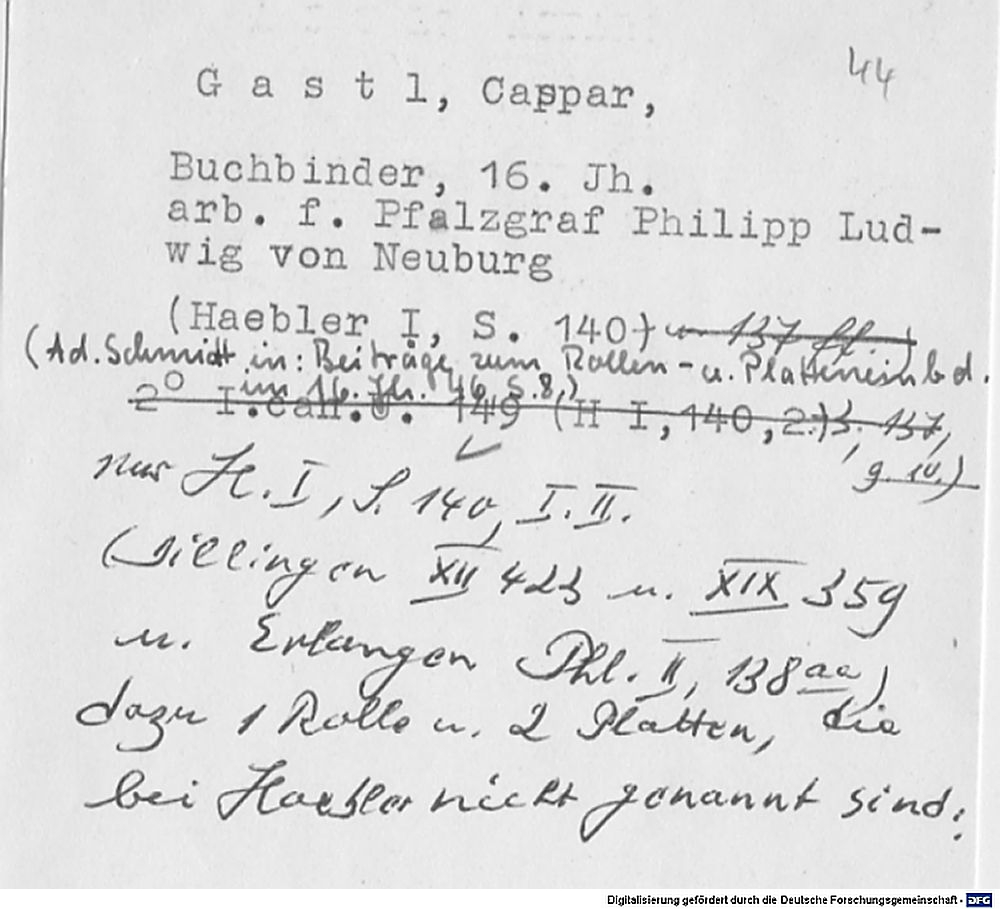 44
G a s t l, Caspar,
Buchbinder, 16. Jh.
arb. f. Pfalzgraf Philipp Lud-
wig von Neuburg
(Haebler I, S. 140) u. 137 ff.)
(Ad. Schmidt in: Beiträge zum Rollen- u. Platteneinbd.
im 16. Jh. 46, S. 8,)
2° I.can.u. 149 (H I,140,2.)3, 137,
9. 10.)
nur H. I, S. 140, I. II.
(Dillingen XII 423 u. XIX 359
u. Erlangen Phl. II, 138 aa)
dazu 1 Rolle u. 2 Platten, die
bei Haebler nicht genannt sind:
Digitalisierung gefördert durch die Deutsche Forschungsgemeinschaft - DFG